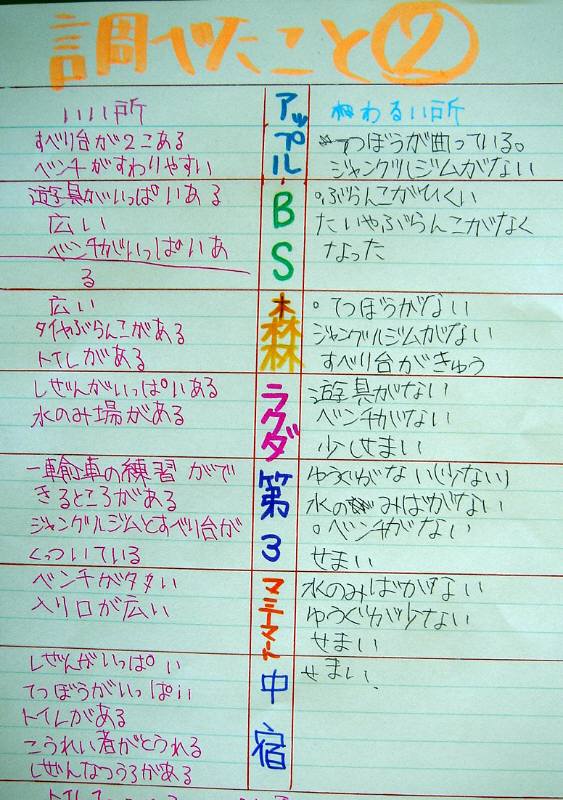 調べたこと②
いい所
アップル
わるい所
すべり台が2こある
ベンチがすわりやすい
てつぼうが曲っている。
ジャングルジムがない
BS
遊具がいっぱいある
広い
ベンチがいっぱいあ
る
ぶらんこがひくい
たいやぶらんこがなく
なった
木森林
広い
タイヤぶらんこがある
トイレがある
てつぼうがない
ジャングルジムがない
すべり台がきゅう
ラクダ
しぜんがいっぱいある
水のみ場がある
遊具がない
ベンチがない
少しせまい
第3
一輪車の練習ができ
きるところがある
ジャングルジムとすべり台が
くっついている
ゆうぐがない(少ない)
水のみばがない
ベンチがない
せまい
マミーマート
ベンチがタタい
入り口が広い
水のみばがない
ゆうぐが少ない
せまい
中宿
しぜんがいっぱい
てつぼうがいっぱい
トイレがある
こうれい者がとうれる
しぜんなつうろがある
せまい